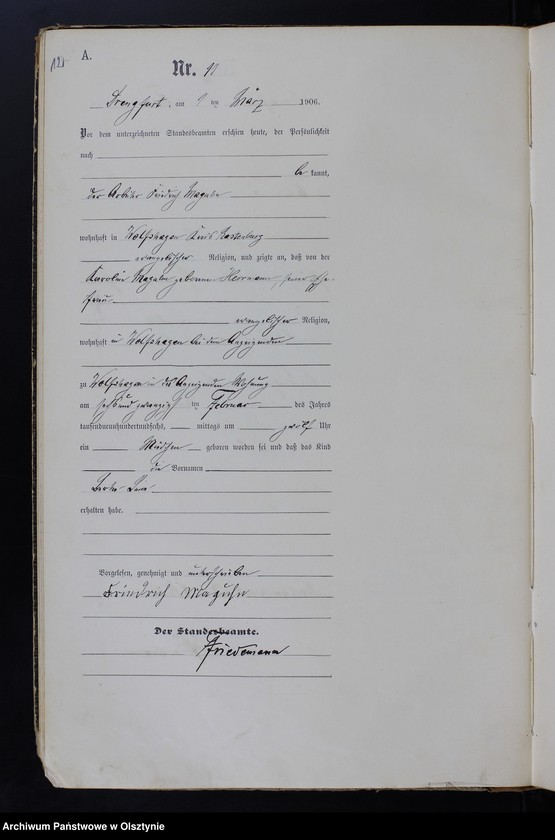 A.
Nr. 11
Drengfurt, am 1 ten März 1906.
Vor dem unterzeichneten Standesbeamten erschien heute, der Persönlichkeit
nach
be kannt,
der Arbeiter Friedrich
wohnhaft in Wolfshagen Kreis Rastenburg
evangelischer Religion, und zeigte an, daß von der
Karoline geborenen Herrmann, seiner Ehe-
frau
evangelischer Religion,
wohnhaft in Wolfshagen bei dem Anzeigenden
zu Wolfshagen in des Anzeigenden Wohnung
am sechsundzwanzigsten ten Februar des Jahres
tausendneunhundertundsechs, mittags um zwölf Uhr
ein Mädchen geboren worden sei und daß das Kind
die Vornamen
Berta
erhalten habe.
Vorgelesen, genehmigt und unterschrieben
Friedrich
Der Standesbeamte.
Friedemann
Archiwum Państwowe w Olsztynie